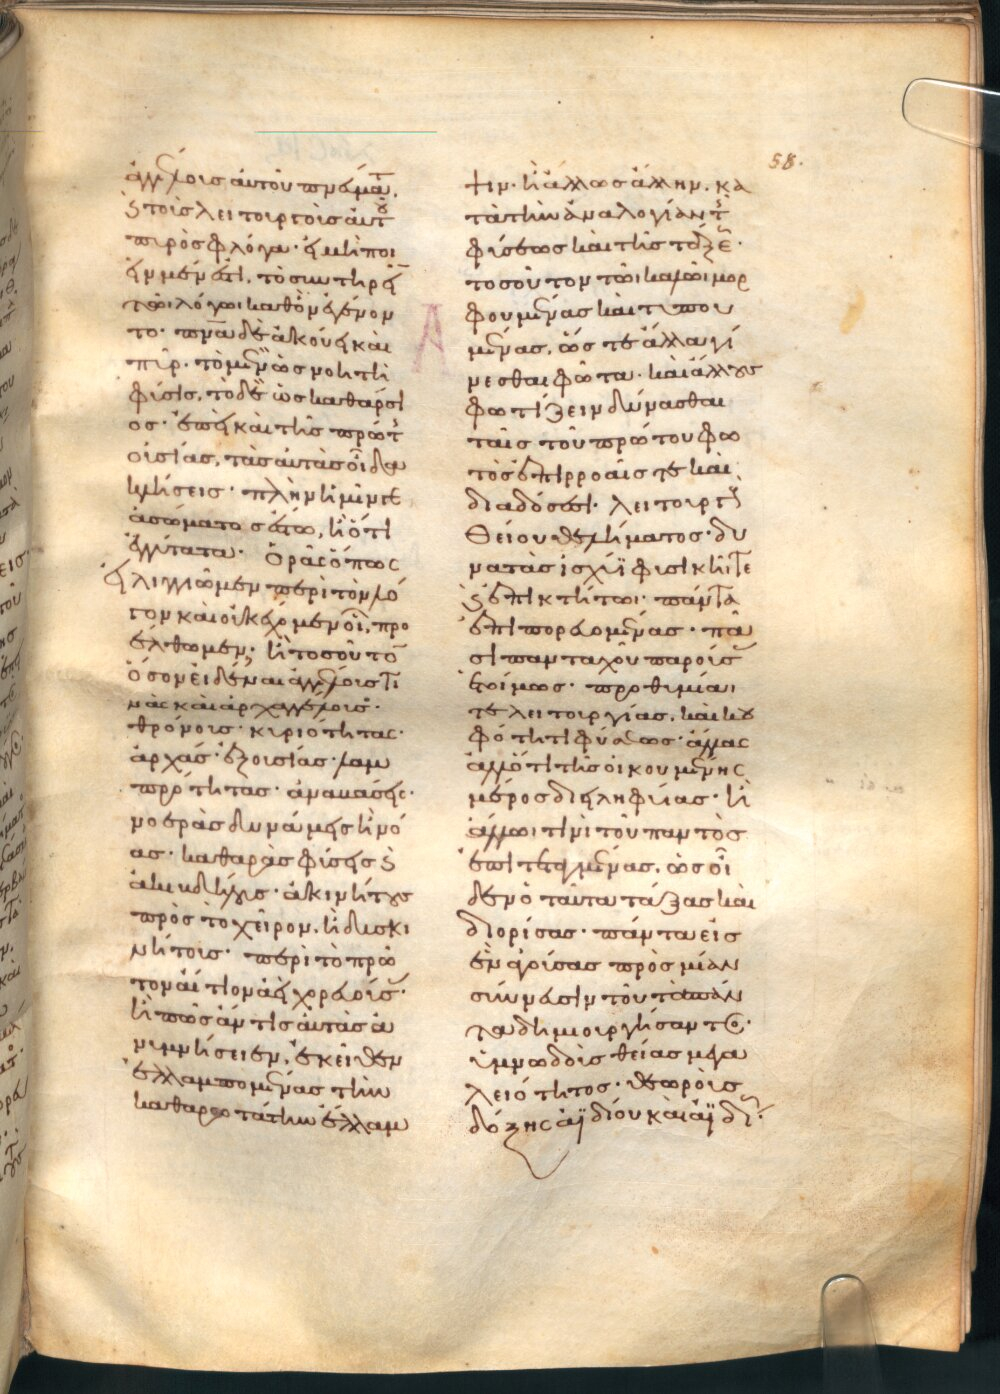 58.
ἀγγέλους αὐτοῦ πν(εύμ)ατ(α).
κ(αὶ) τοὺς λειτουργοὺς αὐτοῦ
πυρὸς φλόγα· εἰ μὴ ποι
εῖν μὲν ἐστὶ, τὸ συντηρεῖ(ν)
τῶι λόγωι καθ' ὃν ἐγένον
το· πν(εῦμ)α δὲ ἀκούει καὶ
πῦρ. τὸ μὲν ὡς νοητὴ
φύσις, τὸ δὲ ὡς καθάρσι
ος· ἐπεὶ καὶ τῆς πρώτ(ης)
οὐσίας, τὰς αὐτὰς οἶδα
κλήσεις· πλὴν ἡμῖν γε
ἀσώματος ἔστω, ἢ ὅτι
ἐγγύτατα· Ὁρᾷς ὅπως
εἰλιγγιῶμεν περὶ τὸν λό
γον καὶ οὐκ ἔχομεν οἷ, προ
έλθωμεν; ἢ τοσοῦτο(ν)
ὅσον εἰδέναι ἀγγέλους τι
νὰς καὶ ἀρχαγγέλους·
θρόνους· κυριότητας·
ἀρχάς· ἐξουσίας· λαμ
πρότητας· ἀναβάσεις·
νοερὰς δυνάμεις ἢ νό
ας· καθαρὰς φύσεις κ(αὶ)
ἀκιβδήλους· ἀκινήτους
πρὸς τὸ χεῖρον. ἢ δυσκι
νήτους· περὶ τὸ πρῶ
τον αἴτιον ἀεὶ χορευούσ(ας)·
ἢ πῶς ἄν τις αὐτὰς ἀ
νυμνήσειεν, ἐκεῖθεν
ἐλλαμπομένας τὴν
καθαρωτάτην ἔλλαμ
ψιν· ἢ ἄλλως ἄλλην. κα
τὰ τὴν ἀναλογίαν τ(ῆς)
φύσεως καὶ τῆς τάξε(ως)·
τοσοῦτον τῶι καλῶι μορ
φουμένας καὶ τυπου
μένας, ὥστε ἄλλα γί
νεσθαι φῶτα· καὶ ἄλλους
φωτίζειν δύνασθαι
ταῖς τοῦ πρώτου φω
τὸς ἐπιρροαῖς τε καὶ
διαδόσεσι· λειτουργ(οὺς)
θείου θελήματος· δυ
νατὰς ἰσχύϊ φυσικῆι τε
κ(αὶ) ἐπικτήτωι· πάντα
ἐπιπορευομένας· πᾶ
σι πανταχοῦ παρούσ(ας)
ἑτοίμως· προθυμίαι
τε λειτουργίας. καὶ κου
φότητι φύσεως· ἄλλας
ἄλλό τι τῆς οἰκουμένης
μέρος διειληφυίας· ἢ
ἄλλωι τινὶ τοῦ παντὸς
ἐπιτεταγμένας, ὡς οἶ
δεν ὁ ταῦτα τάξας καὶ
διορίσας· πάντα εἰς
ἓν ἀγούσας πρὸς μίαν
σύννευσιν τοῦ τὰ πάν
τα δημιουργήσαντος·
ὑμνωδοὺς θείας μεγα
λειότητος· θεωροὺς
δόξης ἀϊδίου καὶ ἀϊδί(ως)·